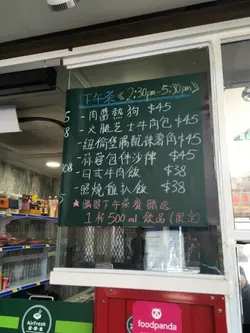 下午茶《2:30pm-5:30pm》
- 肉醬熱狗 $45
- 火腿芝士牛肉包 $45
紐倫堡腸配辣薯角 $45
伴沙律 $45
- 日式牛肉飯 $38
- 照燒雞扒飯 $38
★購買下午茶餐 贈送
1杯500ml 飲品(限定)
AirFresh
foodpanda